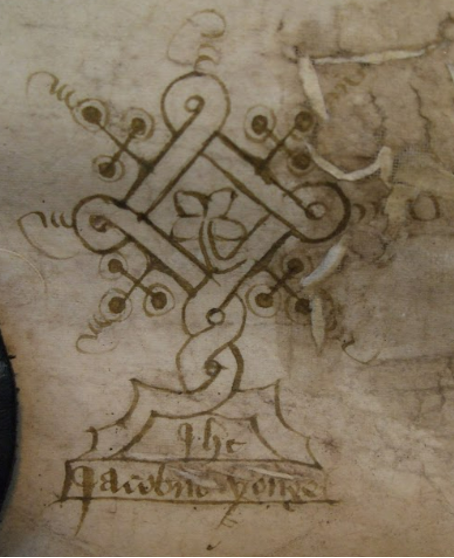 Ihc
Jacobus yonge